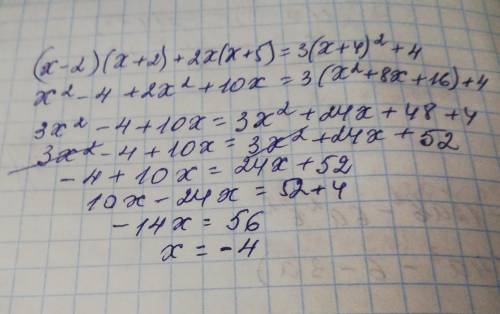 (x-2)(x+2)+2x(x+5)=3(x+4)²+4
x²-4+2x²+10x=3(x²+8x+16)+4
3x²-4+10x=3x²+24x+48+4
3x²-4+10x=3x²+24x+52
-4+10x=24x+52
10x-24x=52+4
-14x=56
x=-4